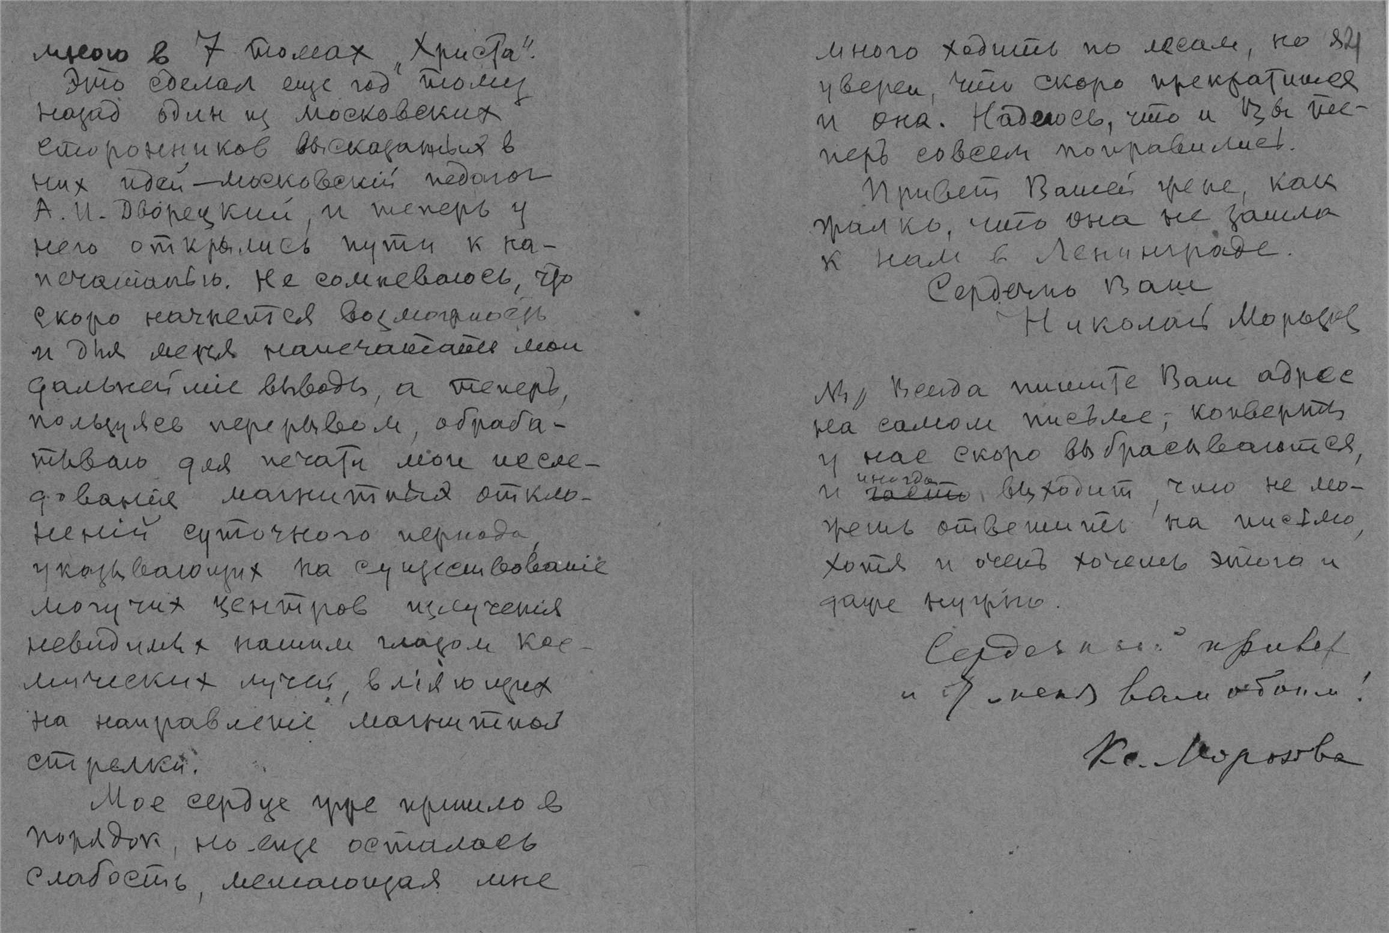 мною в 7 томах „Христа".
Это сделал еще год тому
назад один из московских
сторонников высказанных в
них идей — московскій педагог
А. И. Дворецкий, и теперь у
него открылись пути к на-
печатанью. Не сомневаюсь, что
скоро начнется возможность
и для меня напечатать мои
дальнейшіе выводы, а теперь,
пользуясь перерывом, обраба-
тываю для печати мои иссле-
дованія магнитных откло-
неній суточного периода,
указывающих на существованіе
могучих центров излученія
невидимых нашим глазом кос-
мических лучей, вліяющих
на направленіе магнитной
стрелки.
Мое сердце уже пришло в
порядок, но еще осталась
слабость, мешающая мне
много ходить по лесам, но я
84
уверен, что скоро прекратится
и она. Надеюсь, что и Вы те-
перь совсем поправились.
Привет Вашей жене, как
жалко, что она не зашла
к нам в Ленинграде.
Сердечно Ваш
Николай Морозов
Всегда пишите Ваш адрес
на самом письме; конверты
у нас скоро выбрасываются,
и часто иногда выходит, что не мо-
жешь ответить на письмо,
хотя и очень хочешь этого и
даже нужно.
Сердечный привет
и от меня вам обоим!
Кс. Морозова